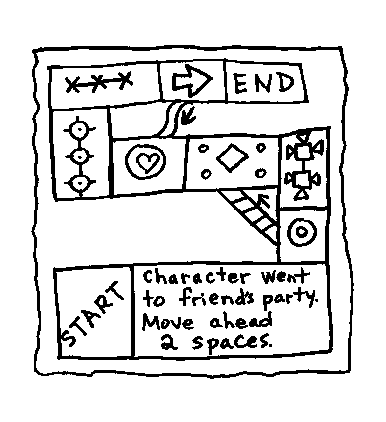 END
START
Character went
to friend's party.
Move ahead
2 spaces.